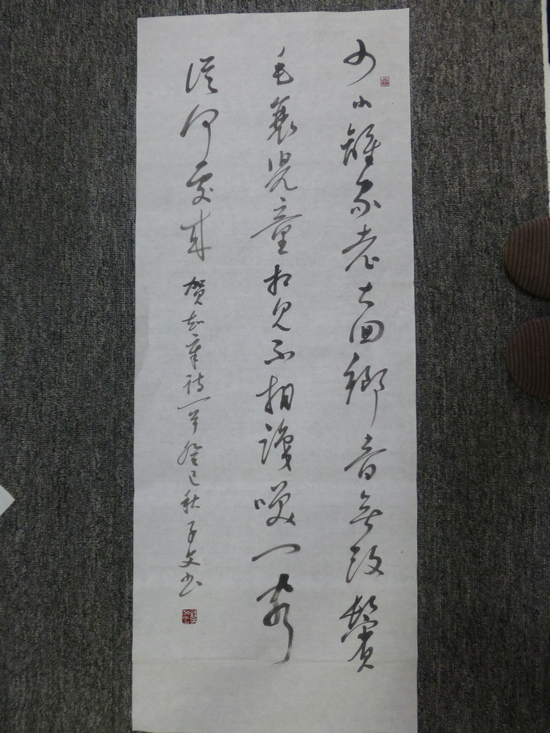 少小離家老大回鄉音無改鬢
毛衰兒童相見不相識咲问客
從何處來 贺知章诗一首 癸巳秋 子文书